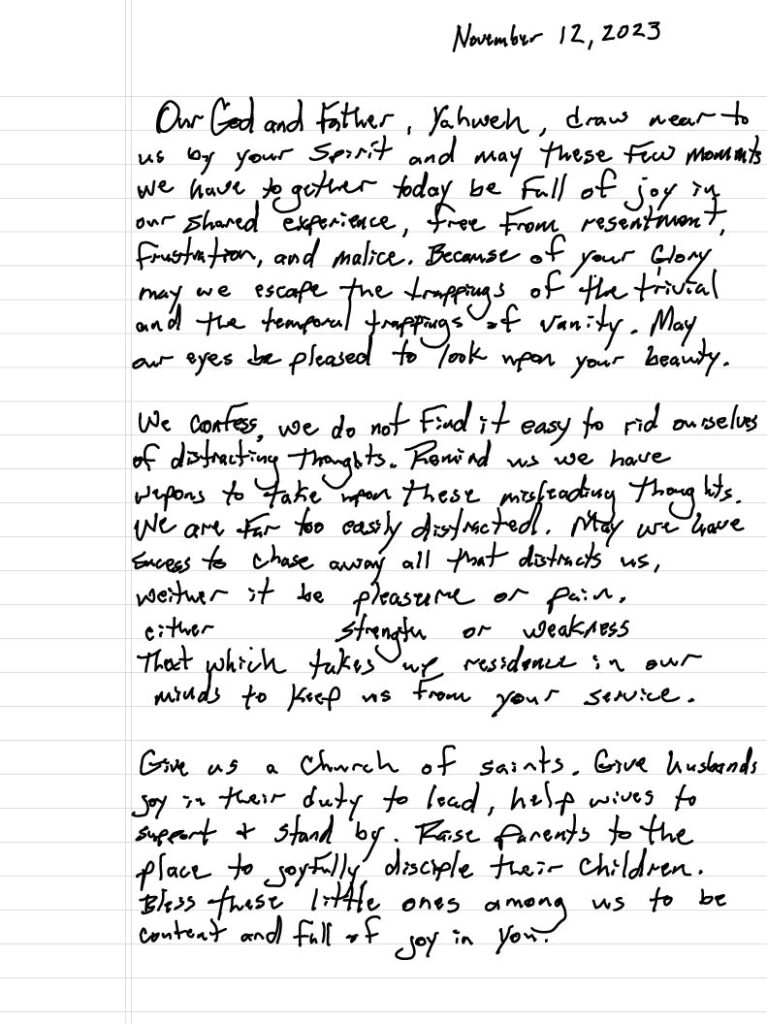 November 12, 2023
Our God and Father, Yahweh, draw near to
us by your Spirit and may these few moments
we have together today be full of joy in
our shared experience, free from resentment,
frustration, and malice. Because of your Glory
may we escape the trappings of the trivial
and the temporal trappings of vanity. May
our eyes be pleased to look upon your beauty.
We confess, we do not find it easy to rid ourselves
of distracting thoughts. Remind us we have
wepons to take upon these misleading thoughts.
We are far too easily distracted. May we have
success to chase away all that distracts us,
weither it be pleasure or pain.
either strength or weakness
That which takes up residence in our
minds to keep us from your service.
Give us a church of saints. Give husbands
joy in their duty to lead, help wives to
support + stand by. Raise parents to the
place to joyfully disciple their children.
Bless these little ones among us to be
content and full of joy in you.